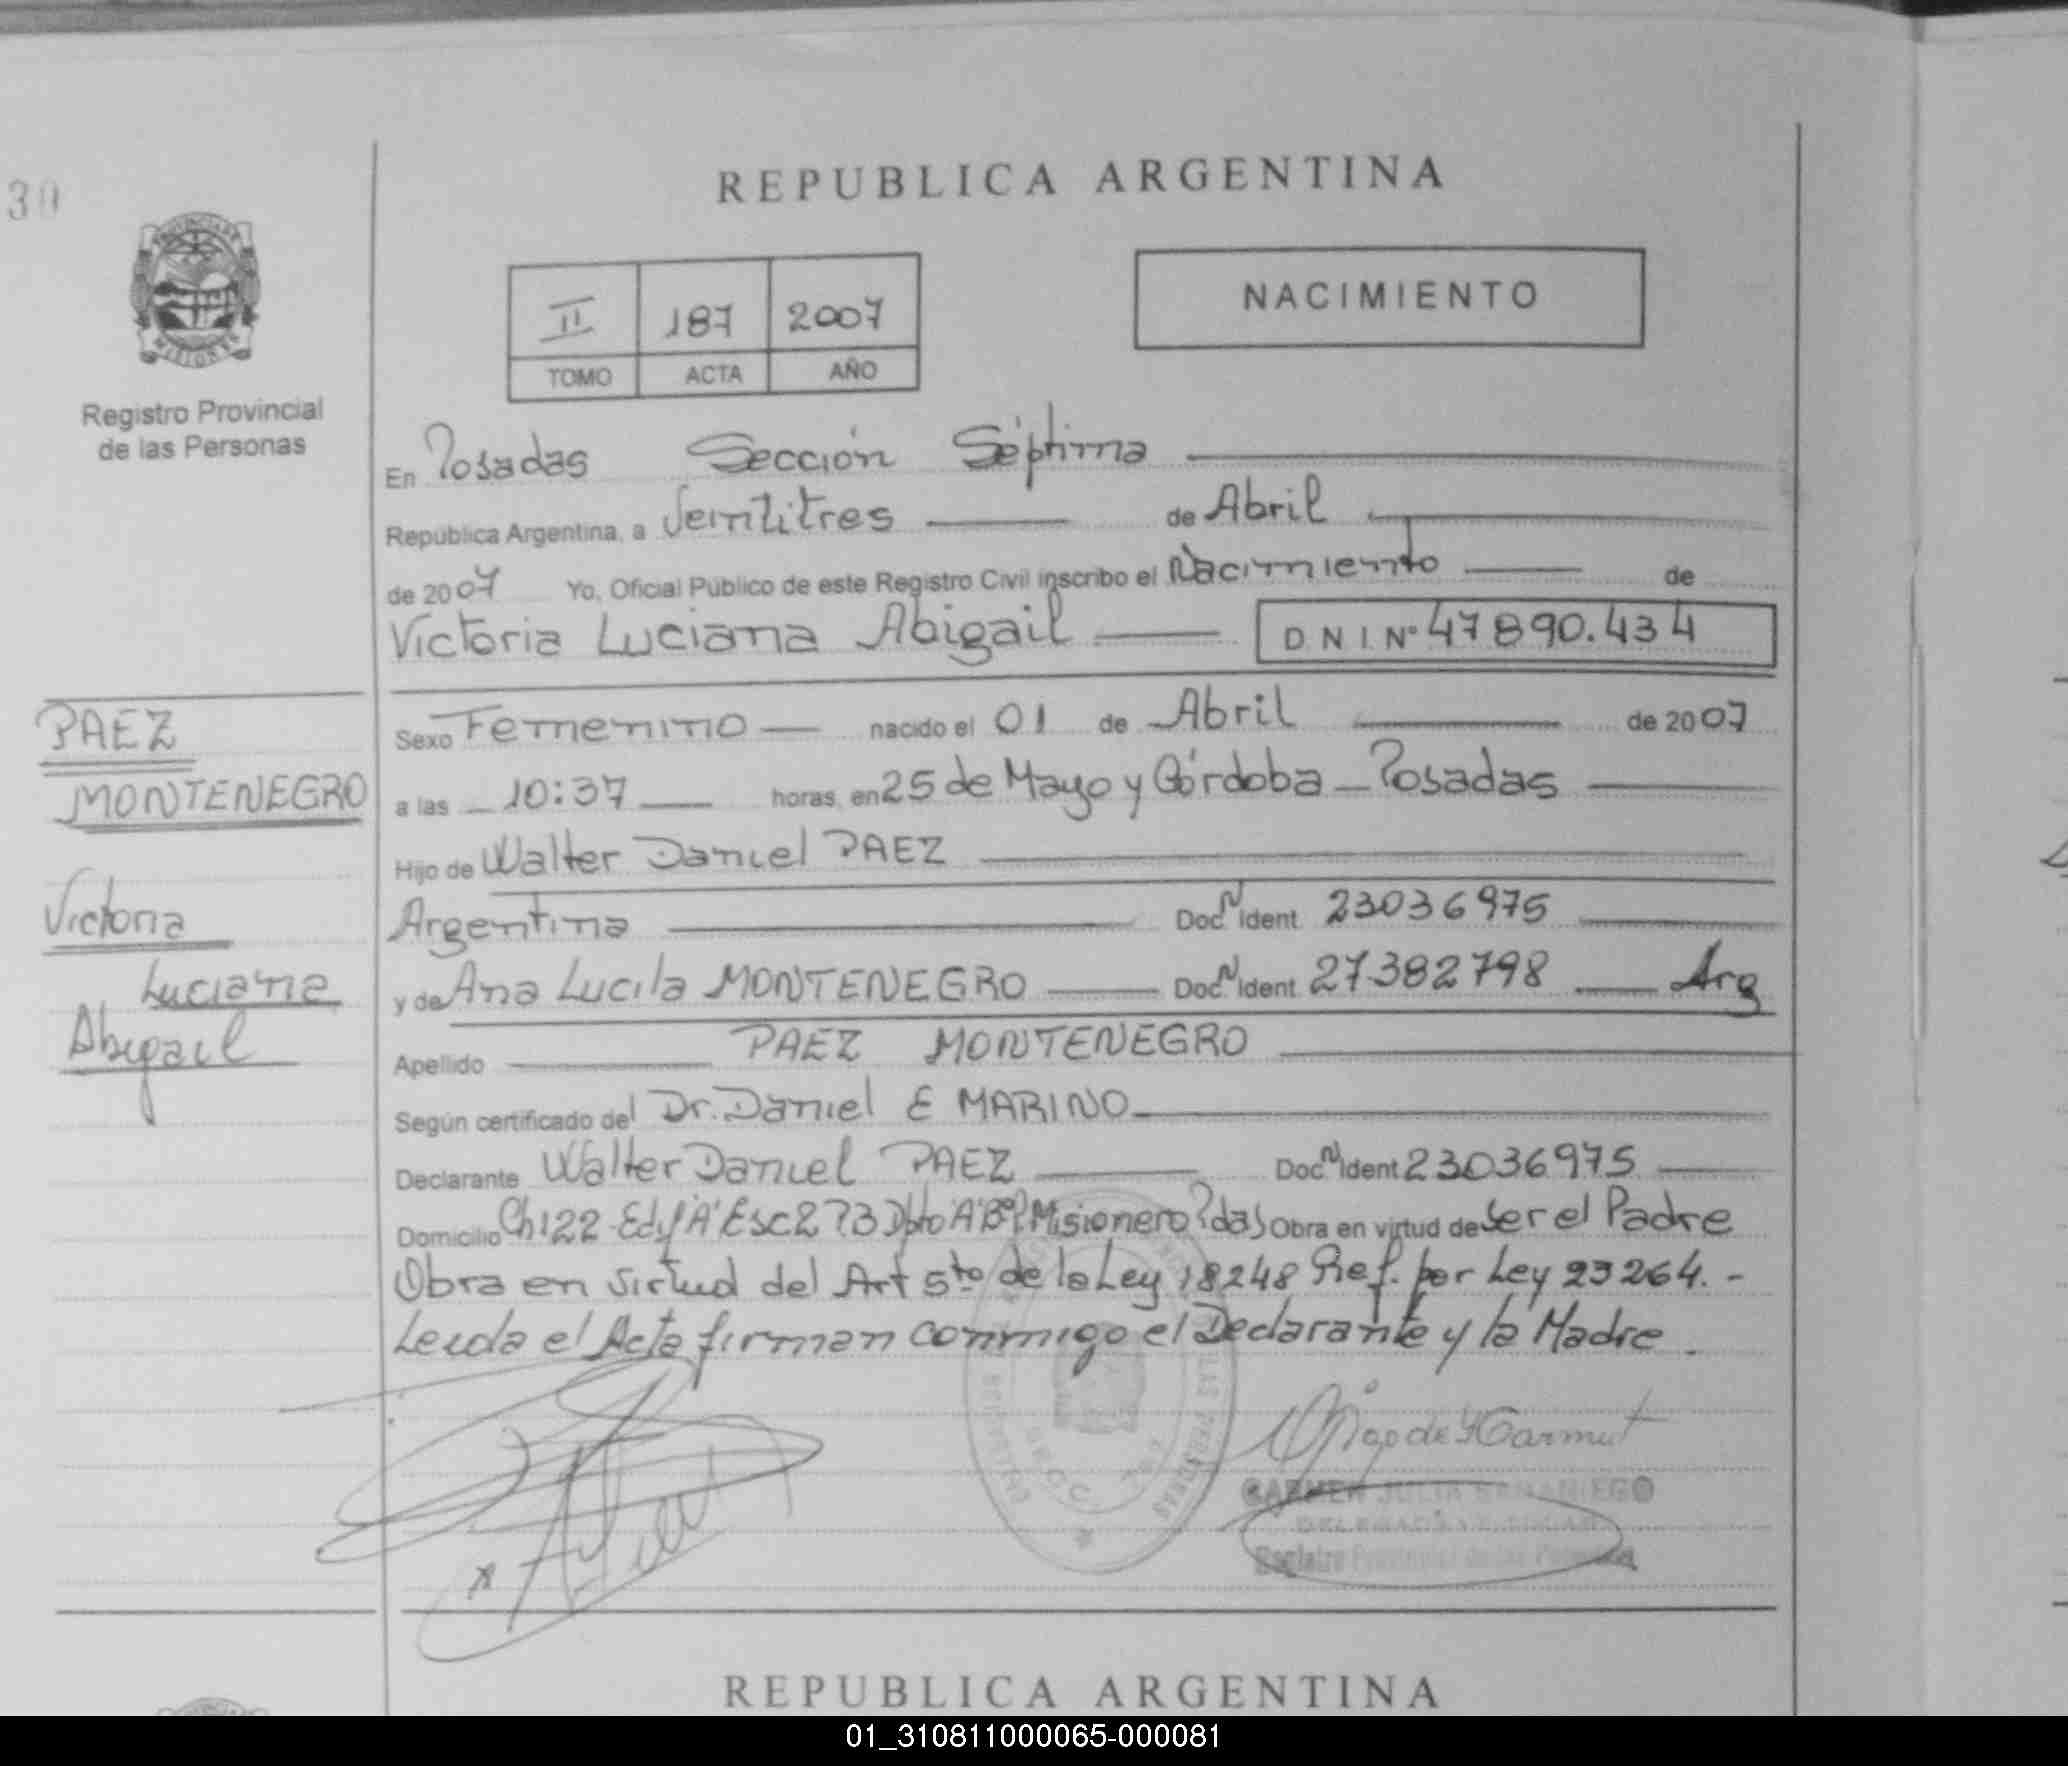 30
REPUBLICA ARGENTINA
II 187 2007
TOMO ACTA AÑO
NACIMIENTO
Registro Provincial
de las Personas
En Posadas Sección Séptima
República Argentina, a Veintitres de Abril
de 2007 Yo, Oficial Público de este Registro Civil inscribo el Nacimiento de
Victoria Luciana Abigail D N I Nº 47890.434
PAEZ
MONTENEGRO
Victoria
Luciana
Abigail
Sexo Femenino nacido el 01 de Abril de 2007
a las 10:37 horas, en 25 de Mayo y Córdoba - Posadas
Hijo de Walter Daniel PAEZ
Argentina Doc. N Ident 23036975
y de Ana Lucila MONTENEGRO Doc. N Ident 27382798 Arg
Apellido PAEZ MONTENEGRO
Según certificado del Dr. Daniel E MARINO
Declarante Walter Daniel PAEZ Doc N Ident 23036975
Domicilio Ch122 Edf "A" Esc 2 Dpto "A" Misionero Pdas Obra en virtud de Ser el Padre
Obra en virtud del Art 5to de la Ley 18248 Ref. por Ley 23264. -
Leida el Acta firman conmigo el Declarante y la Madre.
CARMEN JULIA SAMANIEGO
Registro Provincial de las Personas
REPUBLICA ARGENTINA
01_310811000065-000081